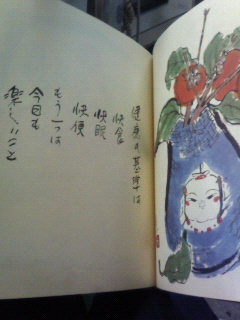 健康の基本は
快食
快眠
快便
もう一つは
今日も
楽しいこと